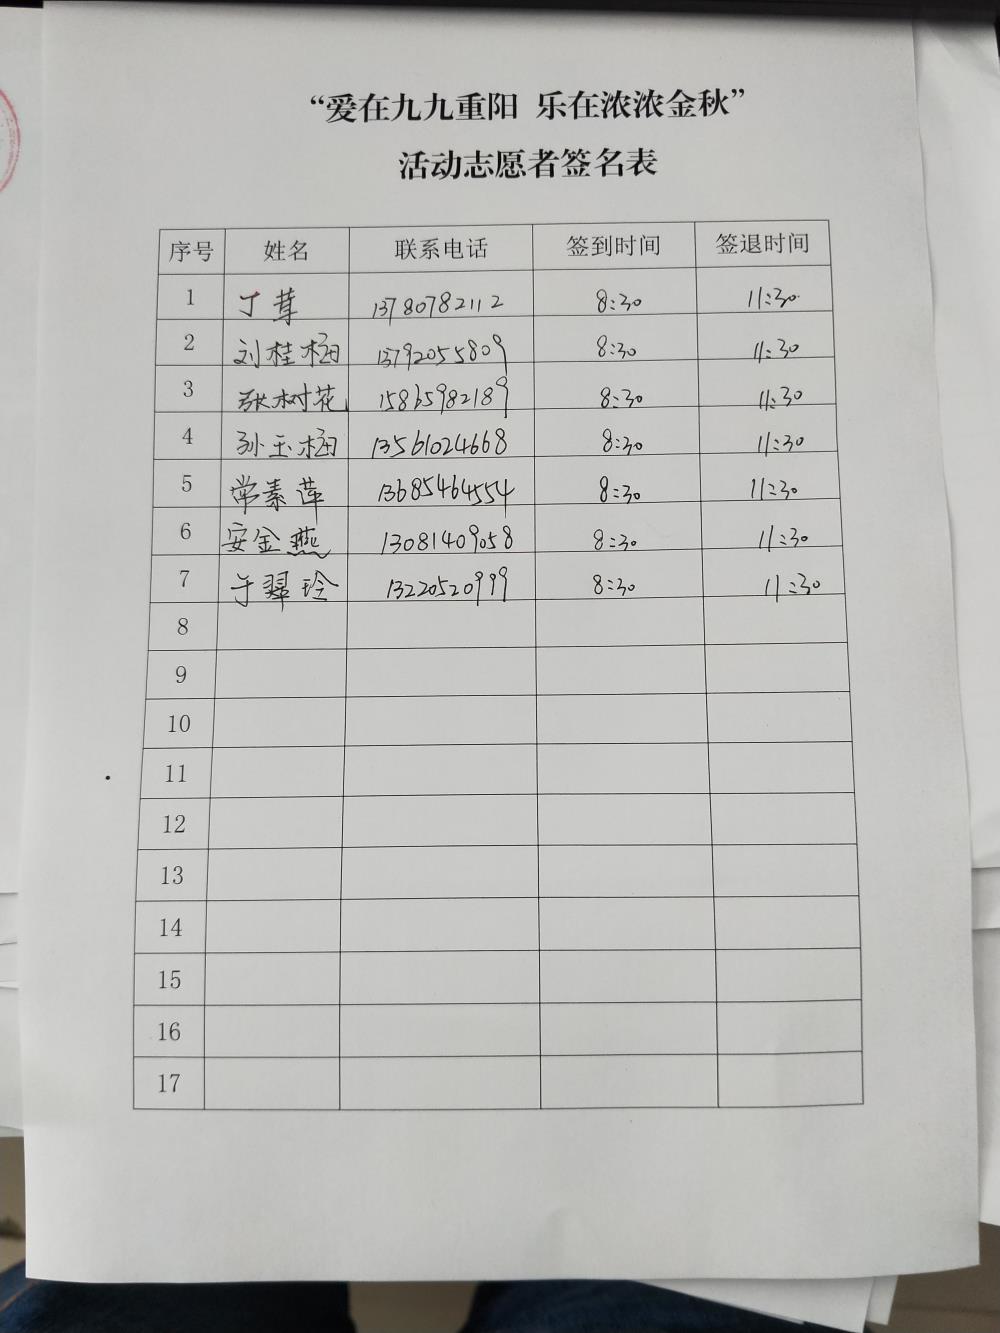 “爱在九九重阳 乐在浓浓金秋”
活动志愿者签名表
序号 姓名 联系电话 签到时间 签退时间
1 丁茸 13780782112 8:30 11:30
2 刘桂梅 13792055809 8:30 11:30
3 张树花 15865982189 8:30 11:30
4 孙玉梅 13561024668 8:30 11:30
5 常素萍 13685464554 8:30 11:30
6 安金燕 13081409058 8:30 11:30
7 于翠玲 13220520999 8:30 11:30
8
9
10
11
12
13
14
15
16
17